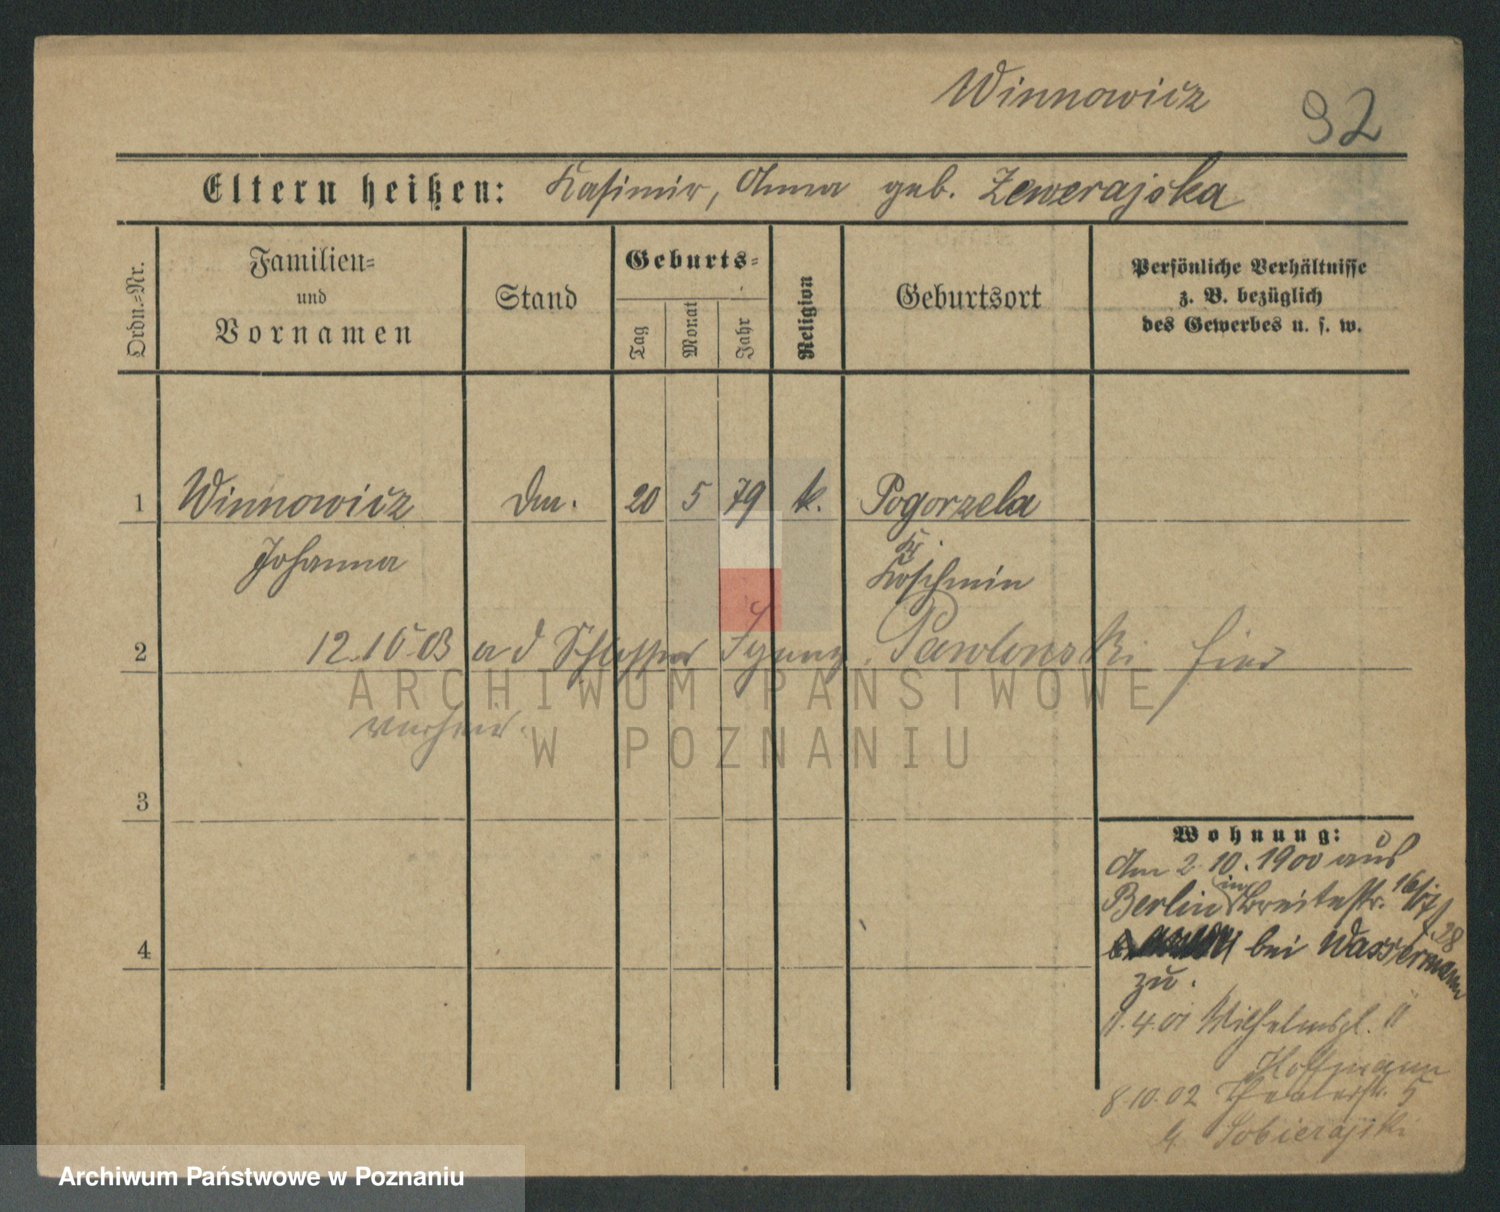 Winnowicz
92
Eltern heißen: Kasimir, Anna geb. Zewerajska
Ordn.-Nr.
Familien-
und
Vornamen
Stand
Geburts-
Tag
Monat
Jahr
Religion
Geburtsort
Persönliche Verhältnisse
z. B. bezüglich
des Gewerbes u. s. w.
1 Winnowicz 20 5 79 k. Pogorzela
Johanna Kr.
Koschmin
2 12.10.03 a d Schlosser Ignaz Pawlowski hier
verheir.
3
4
Wohnung:
Am 2.10.1900 aus
Berlin in Breitestr. 16/17
28
bei Wassermann
zu.
11.4.01 Wilhelmspl.
Hoffmann
8.10.02 Theaterstr. 5
Sobierajski
ARCHIWUM PAŃSTWOWE
W POZNANIU
Archiwum Państwowe w Poznaniu